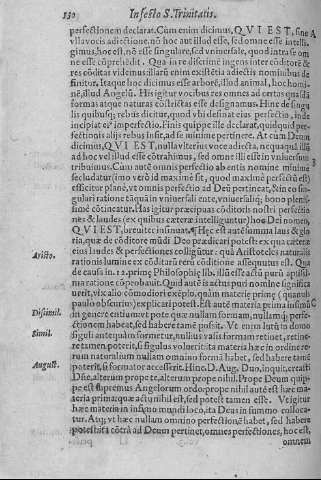 130 In festo S. Trinitatis.
perfectionem declarat. Cum enim dicimus, QVI EST, sine A
vlla vocis adiectione, nō hoc aut illud esse, sed omne esse intelli-
gimus, hoc est, nō esse singulare, sed vniuersale, quod intra se om
ne esse cōprehēdit. Qua in re discrimē ingens inter cōditorē &
res cōditas videmus. illarū enim existētia adiectis nominibus de
finitur. Itaque hoc dicimus esse arborē, illud animal, hoc homi-
nē, illud Angelū. His igitur vocibus res omnes ad certas quasdā
formas atque naturas cōstrictas esse designamus. Hinc de singu
lis quibusq; rebus dicitur, quod vbi desinat eius perfectio, inde
incipiat eius imperfectio. Finis quippe ille declarat, quidquid per-
fectionis alijs rebus insit, ad se minime pertinere. At cum Deum
dicimus, QVI EST, nulla vlterius voce adiecta, nequaquā illū
ad hoc vel illud esse cōtrahimus, sed omne illi esse in vniuersum
tribuimus. Cum autē omnis perfectio ab entis nomine minime B
secludatur (imo verò id maximē est, quod maximē perfectū est)
efficitur planē, vt omnis perfectio ad Deū pertineat, & in eo sin-
gulari ratione tāquā in vniuersali ente, vniuersaliq; bono plenis-
simē cōtineatur. Has igitur præcipuas cōditoris nostri perfectio
nes & laudes (ex quibus cæteræ intelliguntur) hoc Dei nomen,
QVI EST, breuiter insinuat. ¶ Hęc est autē summa laus & glo
ria, quæ de cōditore mūdi Deo prædicari potest: ex qua cæteræ
eius laudes & perfectiones colligūtur: quā Aristoteles naturalis
Aristo.
rationis lumine ex cōditarū rerū cōditione assequutus est. Qua
de causa in .12. primę Philosophię lib. illū esse actū purū aptissi-
ma ratione cōprobauit. Quid autē is actus puri nomine significa
uerit, vix alio cōmodiori exēplo, quàm materię primę (quanuis
paulo obscurior) explicari potest. Est autē materia prima infimū C
Dissimil.
in genere entium: vt pote quæ nullam formam, nullamq; perfe-
ctionem habeat, sed habere tamē possit. Vt enim lutū in domo
Simil.
figuli antequàm formetur, nullius vasis formam retinet, retine-
re tamen poterit, si figulus voluerit: ita materia hæc in ordine re-
rum naturalium nullam omnino formā habet, sed habere tamē
August.
poterit, si formator accesserit. Hinc D. Aug. Duo, inquit, creasti
Dñe, alterum prope te, alterum prope nihil. Prope Deum quip-
pe est supremus Angelorum ordo, prope nihil autē est hæc ma-
teria prima: quæ actu nihil est, sed potest tamen esse. Vt igitur
hæc materia in infimo mundi loco, ita Deus in summo colloca-
tur. Atq; vt hæc nullam omnino perfectionē habet, sed habere
potest: ita cōtrà ad Deum pertinet, omnes perfectiones, hoc est,
omnem